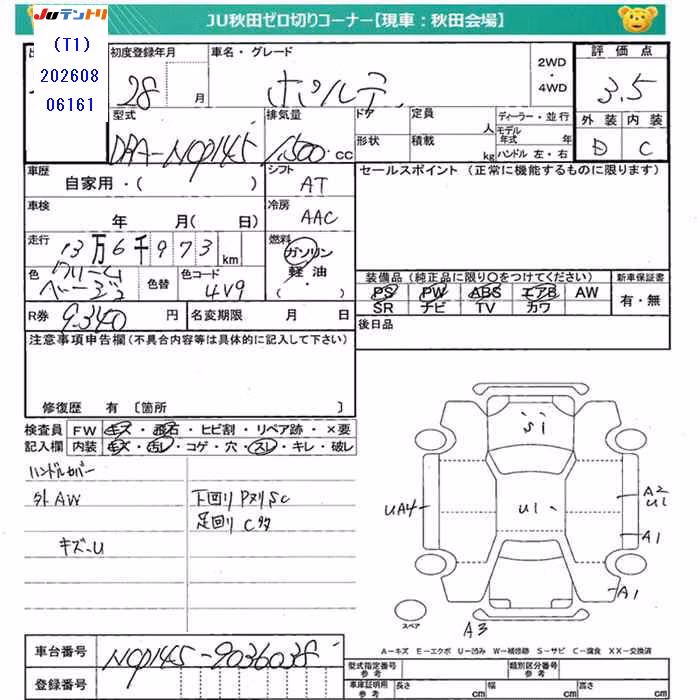 JUテントリ
JU秋田ゼロ切りコーナー【現車：秋田会場】
(T1)
202608
06161
初度登録年月
28 月
車名・グレード
ポルテ
2WD
・
4WD
評価点
3.5
外装 内装
D C
型式
DBA-NCP145
排気量
1500 cc
ドア
形状
定員 人
積載 kg
ディーラー・並行
モデル年式 年
ハンドル 左・右
車歴
自家用・( )
シフト
AT
セールスポイント (正常に機能するものに限ります)
車検
年 月( 日)
冷房
AAC
走行
13万6千973km
燃料
ガソリン
軽油
( ・ )
色
クリーム
ベージュ
色替
色コード
4V9
装備品 (純正品に限り○をつけてください)
PS PW ABS エアB AW
SR ナビ TV カワ
新車保証書
有・無
R券
9,340 円
名変期限 月 日
後日品
注意事項申告欄(不具合内容等は具体的に記入して下さい)
修復歴 有〔箇所 〕
検査員
記入欄
FW キズ・飛石・ヒビ割・リペア跡・×要
内装 キズ・汚レ・コゲ・穴・スレ・キレ・破レ
ハンドルカバー
外AW
キズ-U
下回りPヌリSC
足回りC多
Si
U1
UA4
A2
U1
A1
A1
A3
スペア
A−キズ E−エクボ U−凹み W−補修跡 S−サビ C−腐食 XX−交換済
車台番号
NCP145-9036038
登録番号
型式指定番号
参考
類別区分番号
参考
車庫証明用
参考
長さ cm
幅 cm
高さ cm